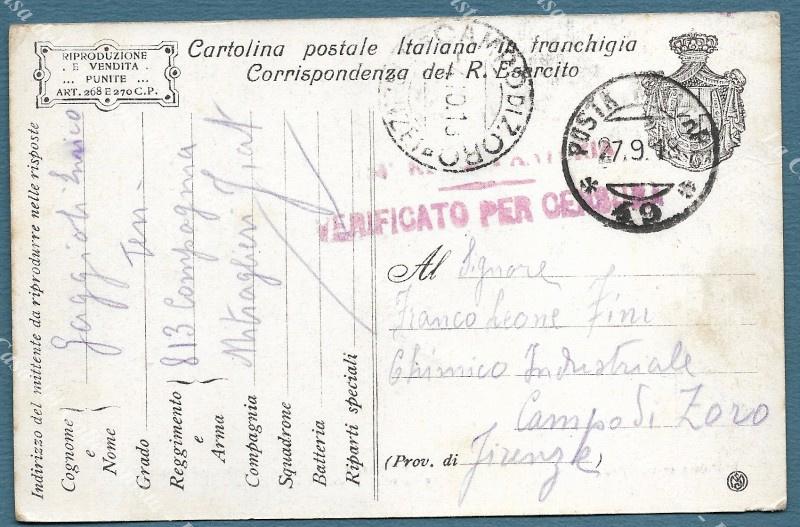 RIPRODUZIONE
E VENDITA
... PUNITE ...
ART. 268 E 270 C.P.
Cartolina postale Italiana in franchigia
Corrispondenza del R. Esercito
CAMPO DI ZORO
POSTA
27.9.18
* 49 *
VERIFICATO PER CENSURA
Indirizzo del mittente da riprodurre nelle risposte
Cognome e Nome
Gaggioli Enrico
Grado
Ten
Reggimento e Arma
813 Compagnia
Compagnia
Mitraglieri Fiat
Squadrone
Batteria
Riparti speciali
Al Signore
Franco Leone Fini
Chimico Industriale
Campo di Zoro
(Prov. di Firenze)